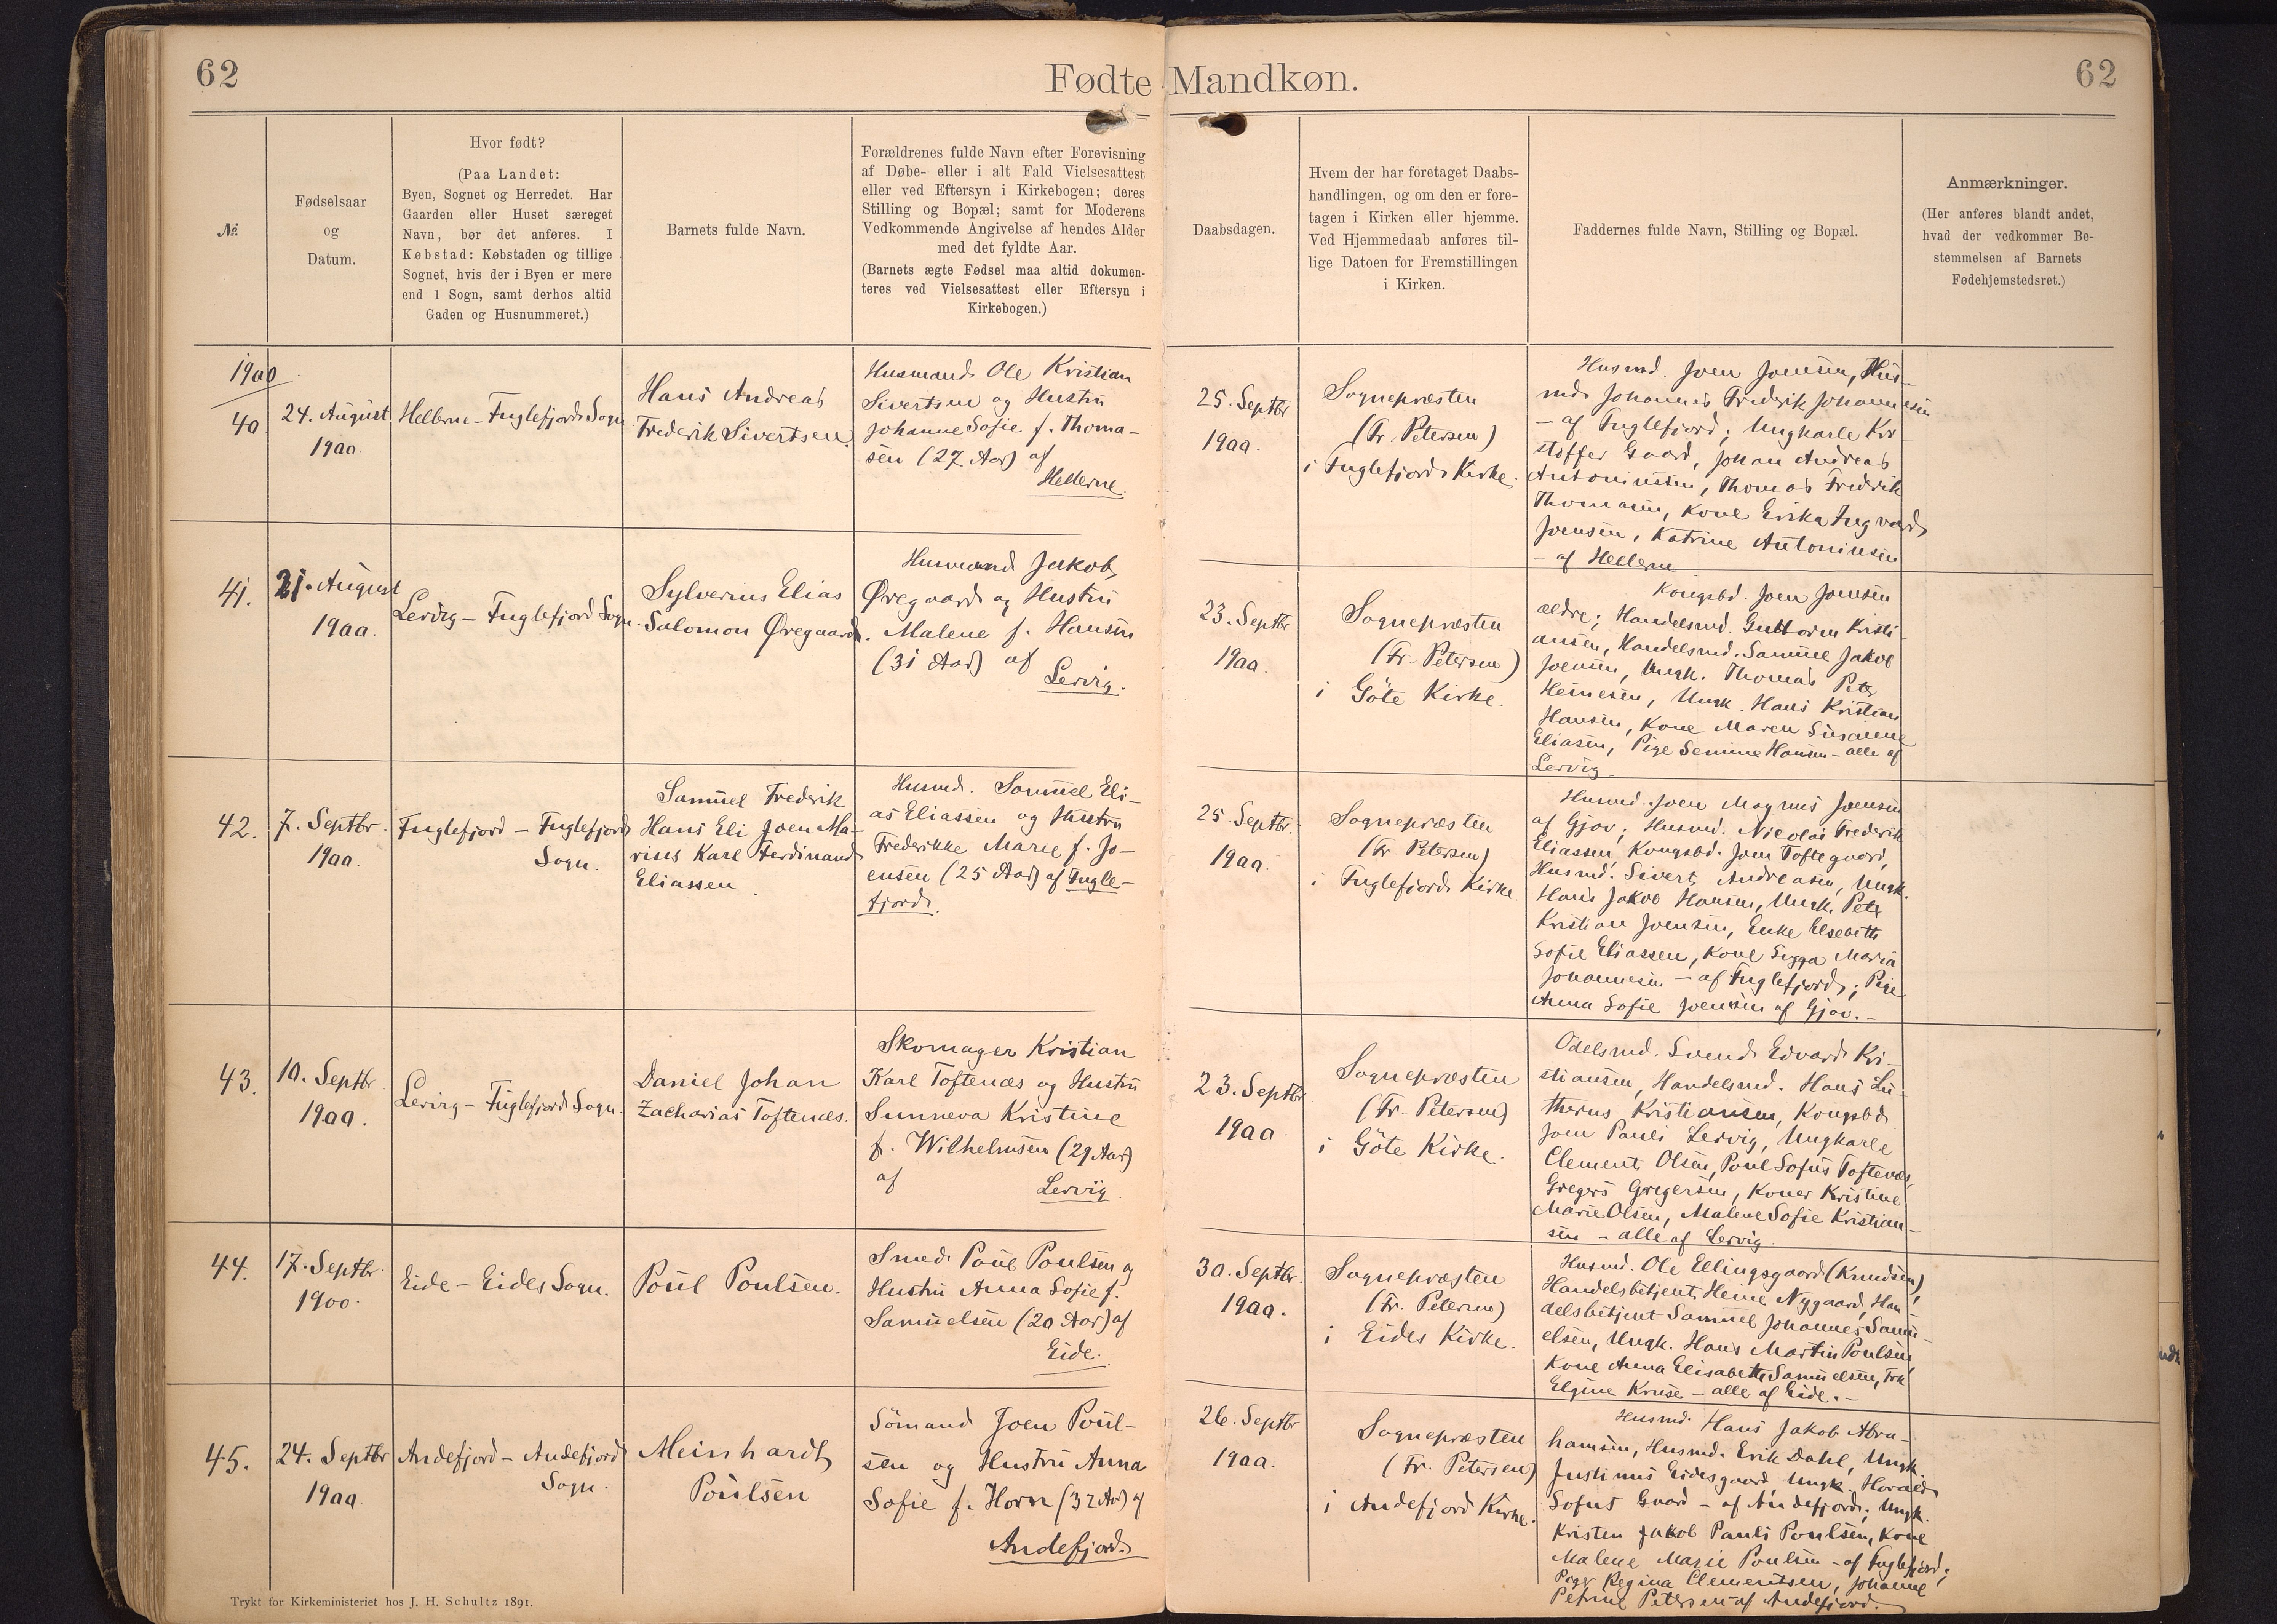 62
Fødte Mandkøn.
62
№
Fødselsaar
og
Datum.
Hvor født?
(Paa Landet:
Byen, Sognet og Herredet. Har
Gaarden eller Huset særeget
Navn, bør det anføres. I
Købstad: Købstaden og tillige
Sognet, hvis der i Byen er mere
end 1 Sogn, samt derhos altid
Gaden og Husnummeret.)
Barnets fulde Navn.
Forældrenes fulde Navn efter Forevisning
af Døbe- eller i alt Fald Vielsesattest
eller ved Eftersyn i Kirkebogen; deres
Stilling og Bopæl; samt for Moderens
Vedkommende Angivelse af hendes Alder
med det fyldte Aar.
(Barnets ægte Fødsel maa altid dokumen-
teres ved Vielsesattest eller Eftersyn i
Kirkebogen.)
Daabsdagen.
Hvem der har foretaget Daabs-
handlingen, og om den er fore-
tagen i Kirken eller hjemme.
Ved Hjemmedaab anføres til-
lige Datoen for Fremstillingen
i Kirken.
Faddernes fulde Navn, Stilling og Bopæl.
Anmærkninger.
(Her anføres blandt andet,
hvad der vedkommer Be-
stemmelsen af Barnets
Fødehjemstedsret.)
1900
40
24. August
1900.
Hellerne - Fuglefjords Sogn
Hans Andreas
Frederik Sivertsen.
Husmand Ole Kristian
Sivertsen og Hustru
Johanne Sofie f. Thoma-
sen (27 Aar) af
Hellerne.
25. Septbr
1900.
Sognepræsten
(Fr. Petersen)
i Fuglefjords Kirke.
Husmd. Joen Joensen, Hus-
md. Johannes Frederik Johannesen
- af Fuglefjord; Ungkarle Kri-
stoffer Gaard, Johan Andreas
Antoniussen, Thomas Frederik
Thomasen, Kone Erika Ingvard
Joensen, Katrine Antoniussen
- af Hellerne
41.
21. August
1900.
Lervig - Fuglefjord Sogn.
Sylverius Elias
Salomon Øregaard.
Husmand Jakob
Øregaard og Hustru
Malene f. Hansen
(31 Aar) af
Lervig.
23. Septbr
1900.
Sognepræsten
(Fr. Petersen)
i Göte Kirke.
Kongsbd. Joen Joensen
ældre; Handelsmd. Guttorm Kristi-
ansen, Handelsmd. Samuel Jakob
Joensen, Ungk. Thomas Peter
Heinesen, Ungk. Hans Kristian
Hansen, Kone Maren Susanne
Eliasen, Pige Semine Hansen - alle af
Lervig
42.
7. Septbr.
1900.
Fuglefjord - Fuglefjord
Sogn.
Samuel Frederik
Hans Eli Joen Ma-
rius Karl Ferdinand
Eliassen.
Husmd. Samuel Eli-
as Eliassen og Hustru
Frederikke Marie f. Jo-
ensen (25 Aar) af Fugle-
fjord.
25. Septbr.
1900.
Sognepræsten
(Fr. Petersen)
i Fuglefjords Kirke
Husmd. Joen Magnus Joensen
af Gjov; Husmd. Nicolai Frederik
Eliassen, Kongsbd. Joen Toftegaard,
Husmd. Sivert Andreasen, Ungk.
Hans Jakob Hansen, Ungk. Peter
Kristian Joensen, Enke Elsebeth
Sofie Eliassen, Kone Sigga Maria
Johannesen - af Fuglefjord; Pige
Anna Sofie Joensen af Gjov. -
43.
10. Septbr.
1900.
Lervig - Fuglefjords Sogn.
Daniel Johan
Zacharias Toftenæs.
Skomager Kristian
Karl Toftenæs og Hustru
Sunneva Kristine
f. Wilhelmsen (29 Aar)
af
Lervig.
23. Septbr
1900
Sognepræsten
(Fr. Petersen)
i Göte Kirke.
Odelsmd. Svend Edvard Kri-
stiansen, Handelsmd. Hans Lu-
therus Kristiansen, Kongsbd.
Joen Pauli Lervig, Ungkarle
Clement Olsen, Poul Sofus Toftenæs,
Gregers Gregersen, Koner Kristine
Marie Olsen, Malene Sofie Kristian-
sen - alle af Lervig
44.
17. Septbr.
1900.
Eide - Eides Sogn.
Poul Poulsen.
Smed Poul Poulsen og
Hustru Anna Sofie f.
Samuelsen (20 Aar) af
Eide.
30. Septbr.
1900.
Sognepræsten
(Fr. Petersen)
i Eides Kirke.
Husmd. Ole Ellingsgaard (Knudsen),
Handelsbetjent Heine Nygaard, Han
delsbetjent Samuel Johannes Samu-
elsen, Ungk. Hans Martin Poulsen,
Kone Anna Elisabeth Samuelsen, Frk
Elgine Kruse - alle af Eide. -
45.
24. Septbr
1900
Andefjord - Andefjord
Sogn.
Meinhardt
Poulsen
Sömand Joen Poul-
sen og Hustru Anna
Sofie f. Horn (32 Aar) af
Andefjord.
26. Septbr
1900.
Sognepræsten
(Fr. Petersen)
i Andefjord Kirke.
Husmd. Hans Jakob Abra-
hamsen, Husmd. Erik Dahl, Ungk.
Justinus Eidesgaard, Ungk. Harald
Sofus Gaard - af Andefjord; Ungk.
Kristen Jakob Pauli Poulsen, Kone
Malene Marie Poulsen - af Fuglefjord;
Piger Regina Clementsen, Johanne
Petrine Petersen af Andefjord.
Trykt for Kirkeministeriet hos J. H. Schultz 1891.